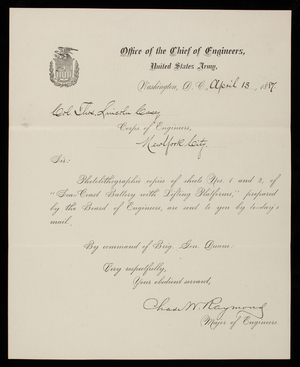 Office of the Chief of Engineers,
United States Army,
Washington, D. C. April 13, 1887.
Col. Thos. Lincoln Casey
Corps of Engineers,
New York City.
Sir:
Photolithographic copies of sheets Nos. 1 and 2, of
"Sea-Coast Battery with Lifting Platforms," prepared
by the Board of Engineers, are sent to you by to-day's
mail.
By command of Brig. Gen. Duane:
Very respectfully,
Your obedient servant,
Chas. W. Raymond
Major of Engineers.